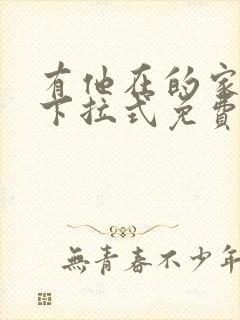 有他在的家
下拉式免費
無青春不少年